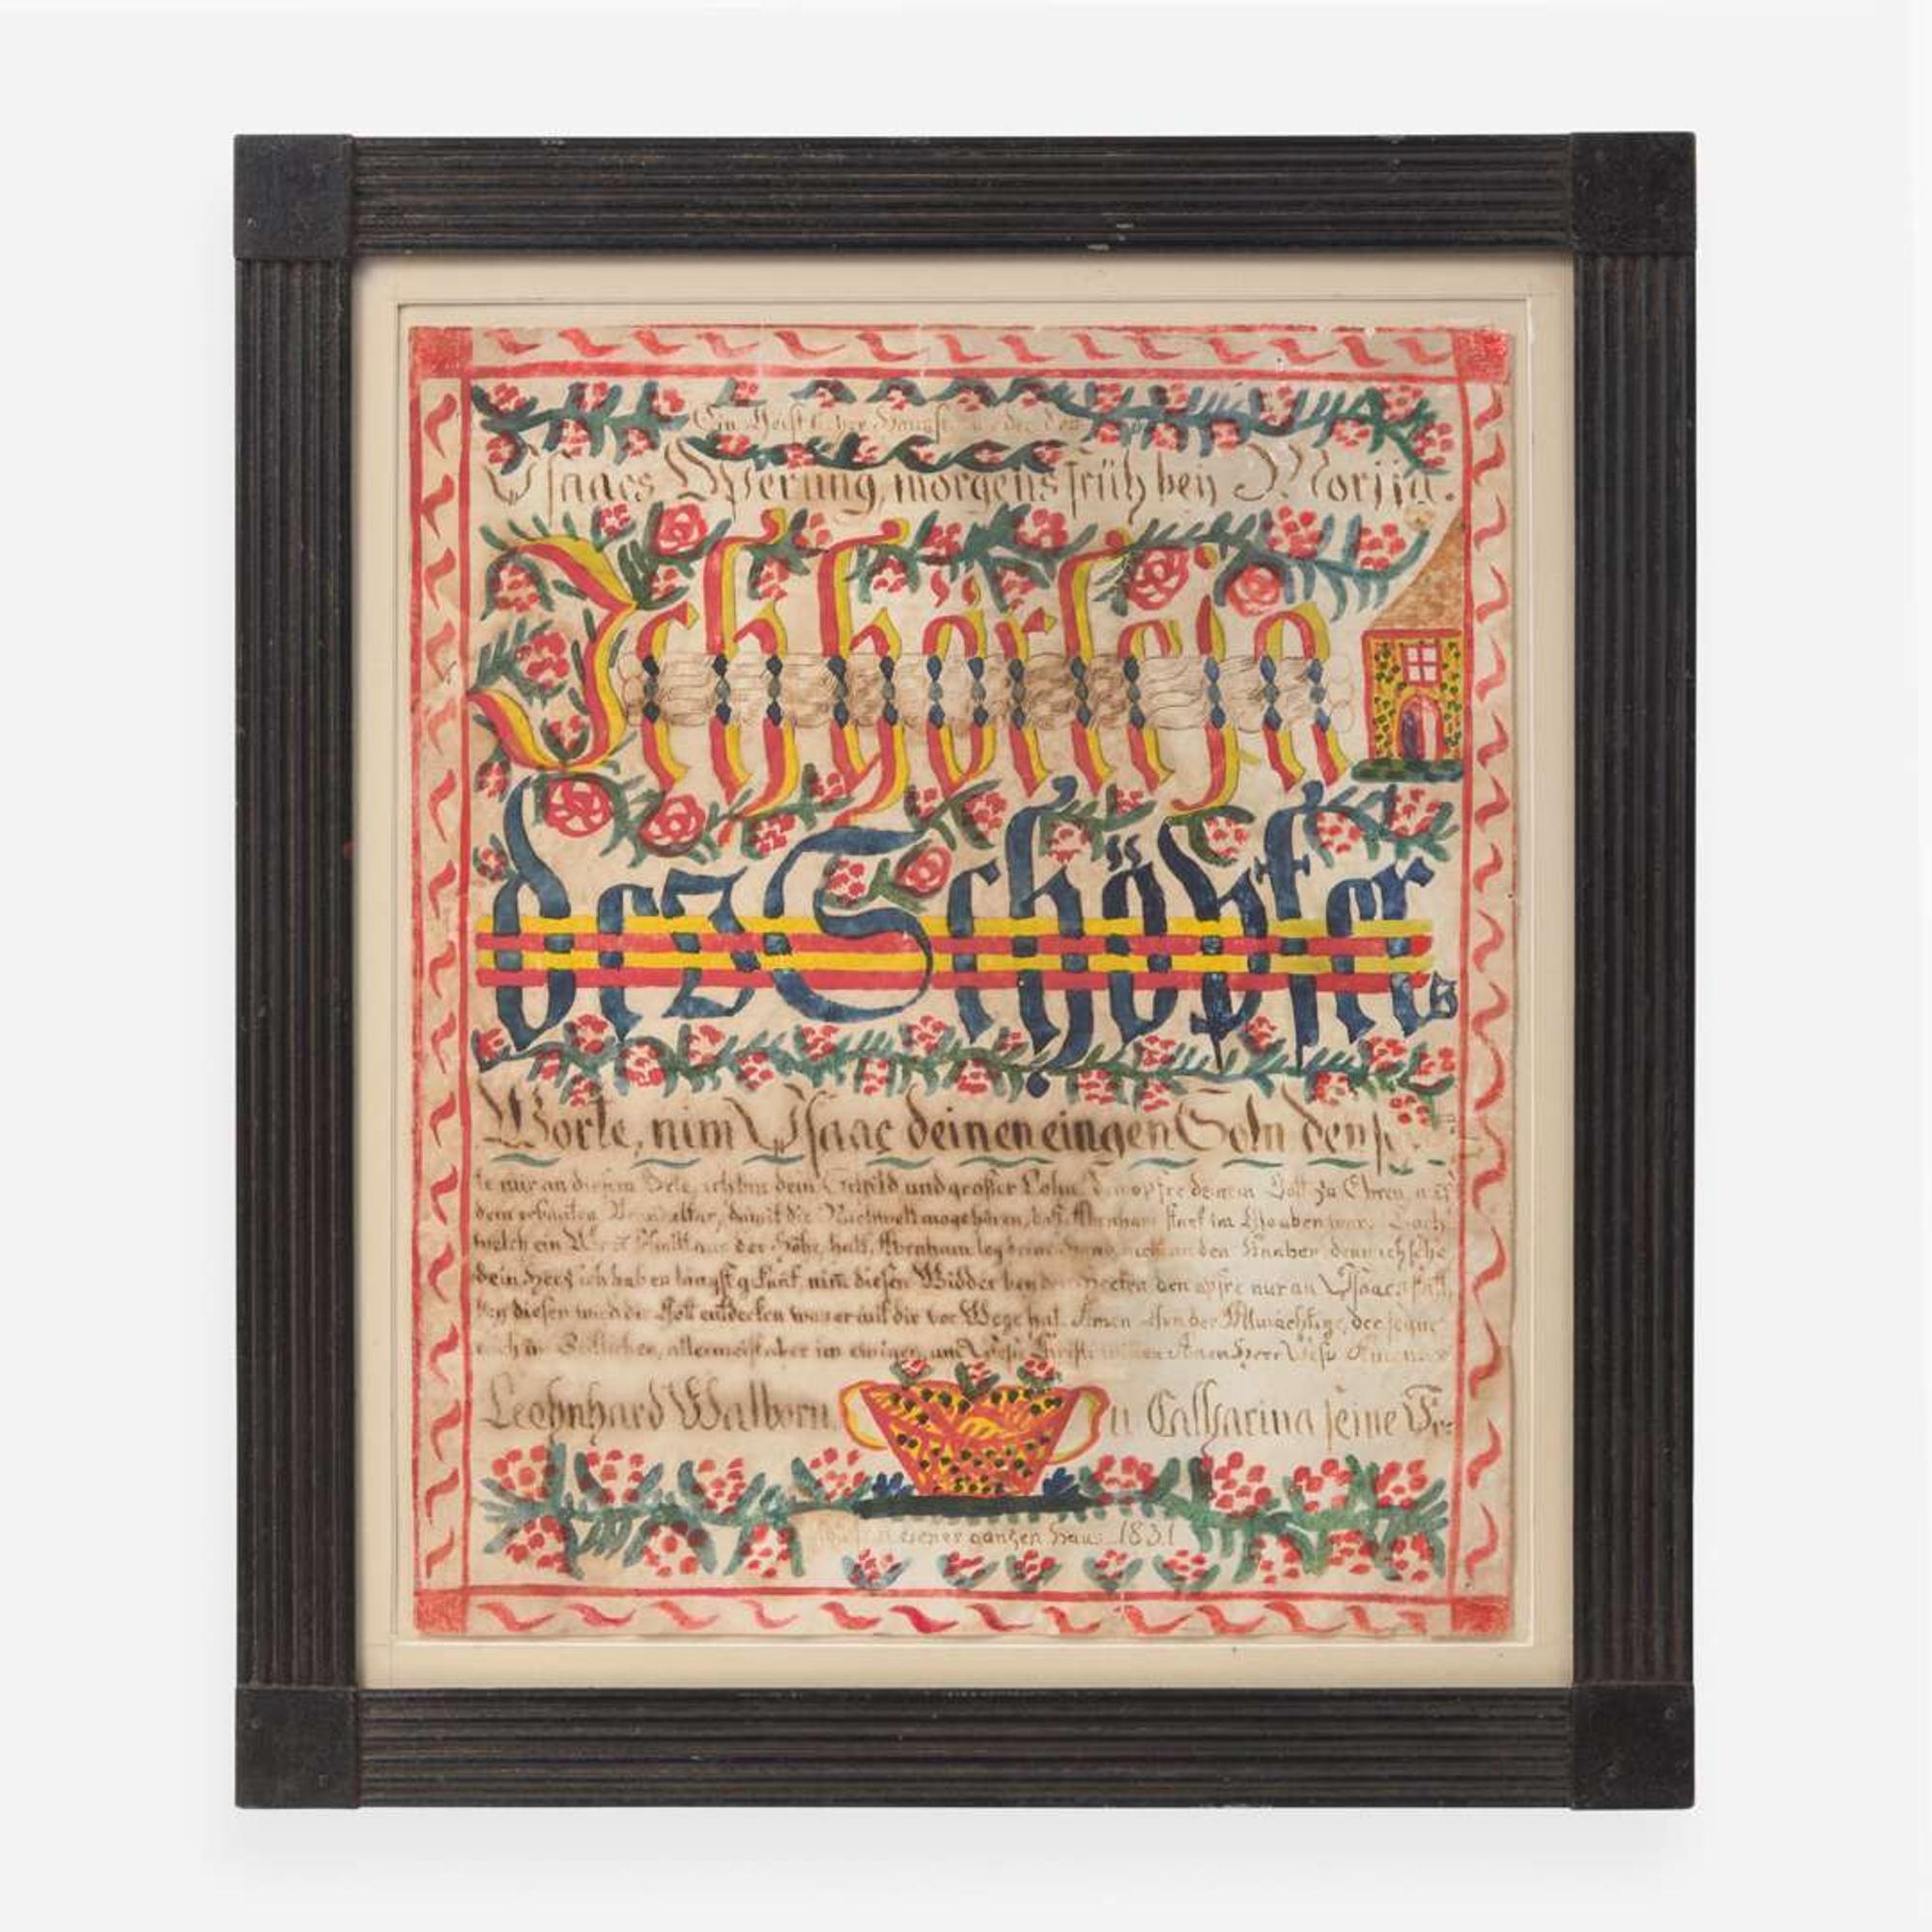 Ein Geist
Ysaacs Opferung, morgens früh bey Morija.
Ich hörte in
des Schöpfers
Worte, nim Ysaac deinen eingen Sohn den
te nur an diesem Orte, ich bin dein Schild und großer Lohn, den opfre deinem Gott zu Ehren, auf
dem erbauten Brandaltar, damit die Nachwelt moge hören, daß Abraham starf im Glauben war. Doch
welch ein Wort schallt aus der Höhe, halt, Abraham leg deine Hand nicht an den Knaben, denn ich sehe
dein Herz ich hab es längst gekant, nim diesen Widder bey der Hecken den opfre nur an Ysaacs statt,
bey diesen wird dir Gott entdecken was er mit dir vor Wege hat. Amen der Allmächtige, der segne
euch im Zeitlichen, allermeist aber im ewigen, um Jesu Christi willen Amen Herr Jesu Amen
Leohnhard Walborn u Catharina seine Fr:
seines ganzen Haus 1831